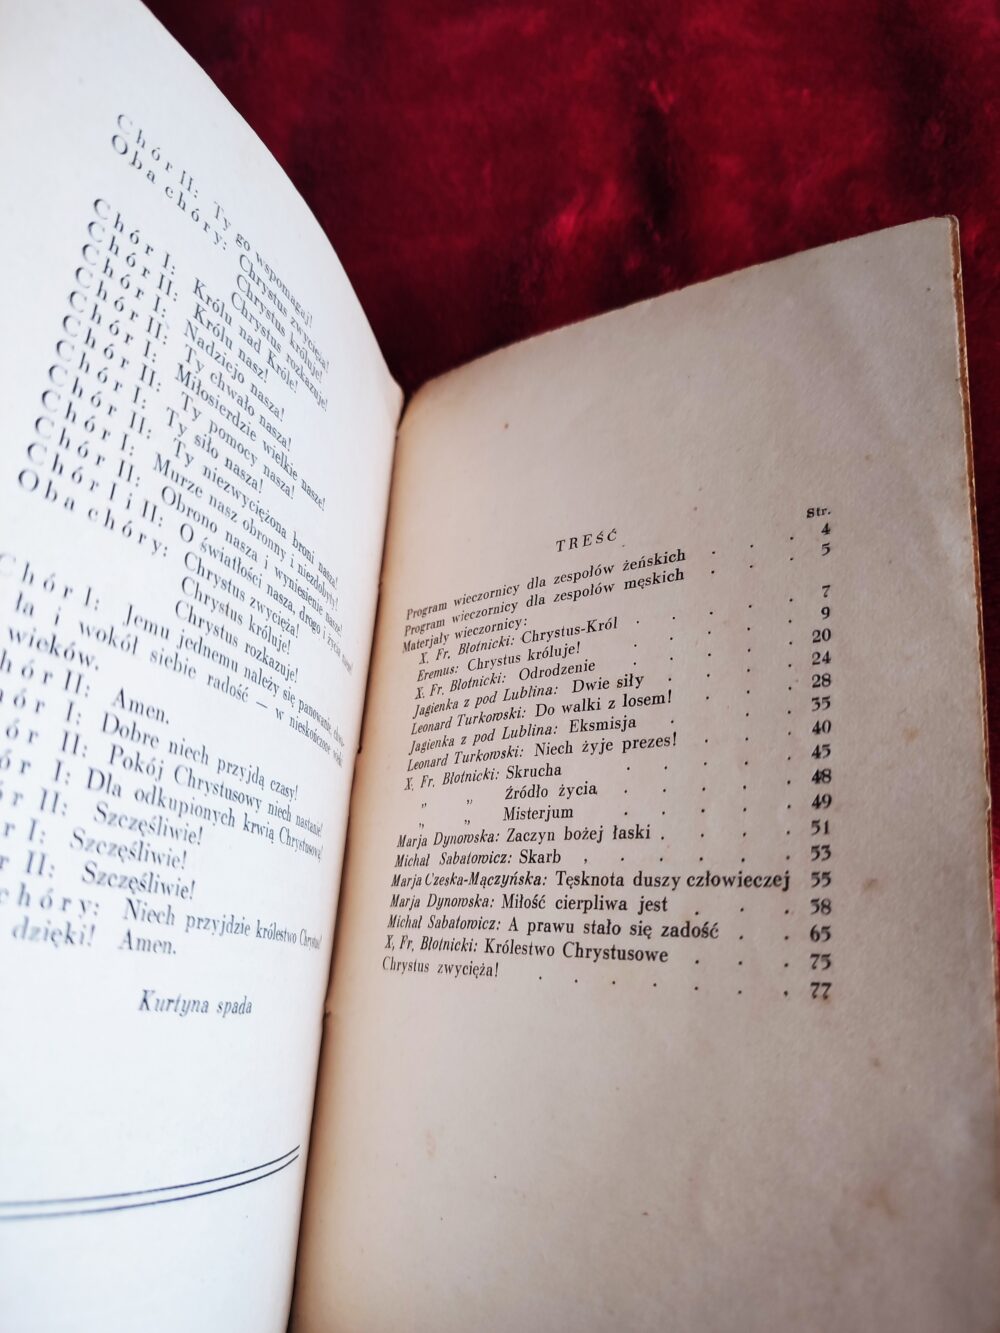 Chór II: Ty go wspomagaj!
Oba chóry: Chrystus zwycięża!
Chrystus króluje!
Chrystus rozkazuje!
Chór I: Królu nad Króle!
Chór II: Królu nasz!
Chór I: Nadziejo nasza!
Chór II: Ty chwało nasza!
Chór I: Miłosierdzie wielkie nasze!
Chór II: Ty pomocy nasza!
Chór I: Ty siło nasza!
Chór II: Ty niezwyciężona broni nasza!
Chór I: Murze nasz obronny i niezdobyty!
Chór II: Obrono nasza i wyniesienie nasze!
Chór I i II: O światłości nasza, drogo i życie
Oba chóry: Chrystus zwycięża!
Chrystus króluje!
Chrystus rozkazuje!
Chór I: Jemu jednemu należy się panowanie,
ła i wokół siebie radość — w nieskończone
wieków.
hór II: Amen.
ór I: Dobre niech przyjdą czasy!
ór II: Pokój Chrystusowy niech nastanie!
ór I: Dla odkupionych krwią Chrystusową!
ór II: Szczęśliwie!
r I: Szczęśliwie!
r II: Szczęśliwie!
chóry: Niech przyjdzie królestwo Chrystusa!
dzięki! Amen.
Kurtyna spada
TREŚĆ
Str.
Program wieczornicy dla zespołów żeńskich . . . 4
Program wieczornicy dla zespołów męskich . . . 5
Materjały wieczornicy:
X. Fr. Błotnicki: Chrystus-Król . . . 7
Eremus: Chrystus króluje! . . . . 9
X. Fr. Błotnicki: Odrodzenie . . . . 20
Jagienka z pod Lublina: Dwie siły . . . . 24
Leonard Turkowski: Do walki z losem! . . . 28
Jagienka z pod Lublina: Eksmisja . . . . 35
Leonard Turkowski: Niech żyje prezes! . . . 40
X. Fr. Błotnicki: Skrucha . . . . . 45
„ „ Źródło życia . . . . . 48
„ „ Misterjum . . . . . 49
Marja Dynowska: Zaczyn bożej łaski . . . . 51
Michał Sabatowicz: Skarb , . . . . . 53
Marja Czeska-Mączyńska: Tęsknota duszy człowieczej 55
Marja Dynowska: Miłość cierpliwa jest . . . . 58
Michał Sabatowicz: A prawu stało się zadość . . 65
X, Fr, Błotnicki: Królestwo Chrystusowe . . . 75
Chrystus zwycięża! . . . . . . . 77